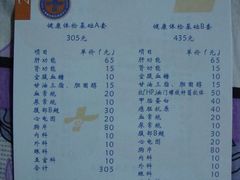 健康体检基础A套
305元
项目 单价(元)
肝功能 65
肾功能 15
空腹血糖 10
甘油三脂、胆固醇 15
血常规 20
尿常规 20
腹部B超 30
心电图 20
胸片 80
内科 10
外科 10
眼科
五官科
合计 305
健康体检基础B套
435元
项目 单价(元)
肝功能 65
肾功能 15
空腹血糖 10
甘油三脂、胆固醇 15
甲胎蛋白
癌胚抗原
血常规
尿常规
腹部B超
心电图
胸片
内科
外科